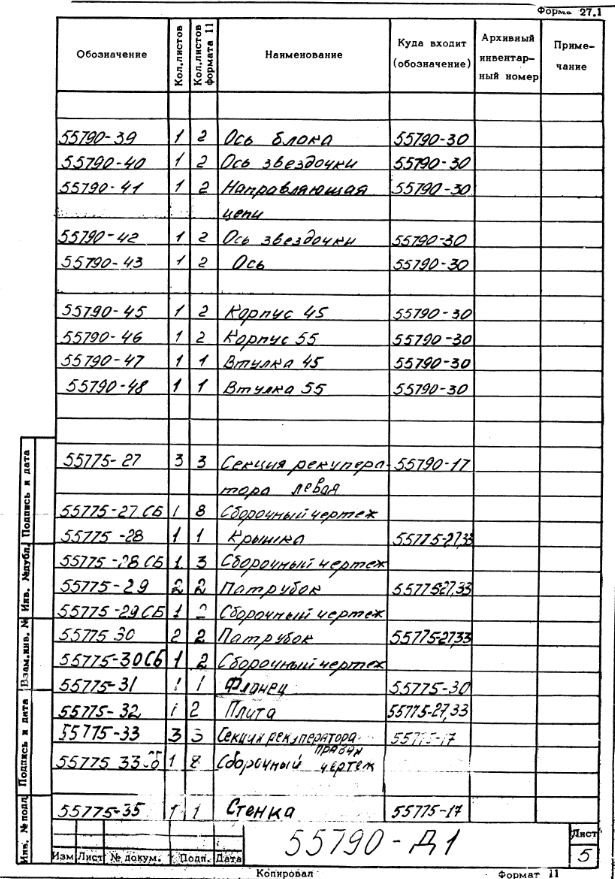 Форма 27.1
Обозначение Кол.листов Кол.листов формата 11 Наименование Куда входит (обозначение) Архивный инвентарный номер Примечание
55790-39 1 2 Ось блока 55790-30
55790-40 1 2 Ось звездочки 55790-30
55790-41 1 2 Направляющая 55790-30
цепи
55790-42 1 2 Ось звездочки 55790-30
55790-43 1 2 Ось 55790-30
55790-45 1 2 Корпус 45 55790-30
55790-46 1 2 Корпус 55 55790-30
55790-47 1 1 Втулка 45 55790-30
55790-48 1 1 Втулка 55 55790-30
55775-27 3 3 Секция рекупера- 55790-17
тора левая
55775-27СБ 1 8 Сборочный чертеж
55775-28 1 1 Крышка 55775-27,33
55775-28СБ 1 3 Сборочный чертеж
55775-29 2 2 Патрубок 55775-27,33
55775-29СБ 1 Сборочный чертеж
55775 30 2 2 Патрубок 55775-27,33
55775-30СБ 1 2 Сборочный чертеж
55775-31 1 1 Фланец 55775-30
55775-32 1 2 Плита 55775-27,33
55775-33 3 3 Секция рекуператора правая
55775 33СБ 1 8 Сборочный чертеж
55775-35 1 1 Стенка 55775-17
Инв. № подл. Подпись и дата Взам.инв. № Инв. №дубл. Подпись и дата
Изм Лист № докум. Подп. Дата
55790-Д1
Лист
5
Копировал Формат 11